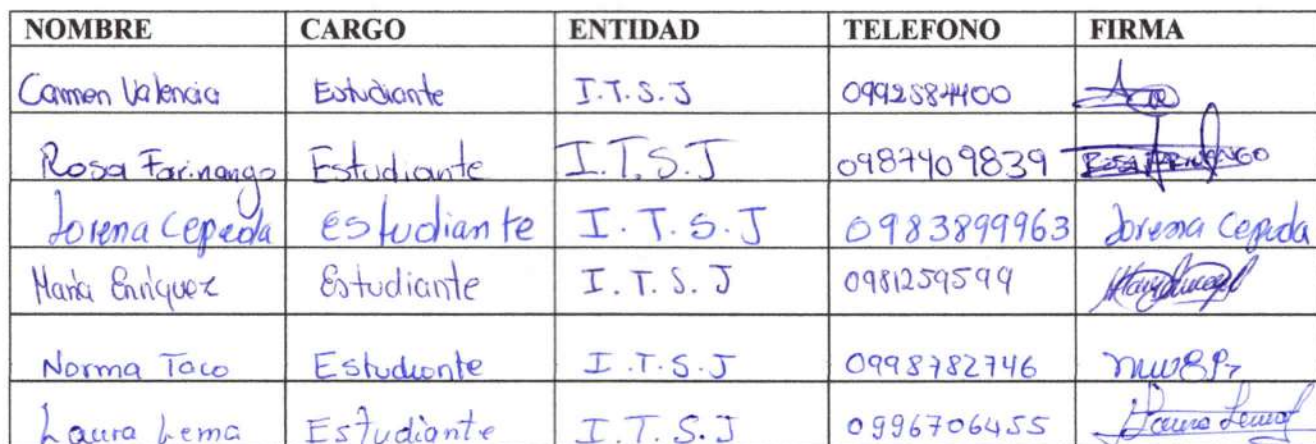 NOMBRE CARGO ENTIDAD TELEFONO FIRMA
Carmen Valencia Estudiante I.T.S.J 0992584400
Rosa Farinango Estudiante I.T.S.J 0987409839 ROSA FARINANGO
Lorena Cepeda estudiante I.T.S.J 0983899963 Lorena Cepeda
Maria Enriquez Estudiante I.T.S.J 0981259599
Norma Taco Estudiante I.T.S.J 0998782746
Laura Lema Estudiante I.T.S.J 0996706455 Laura Lema